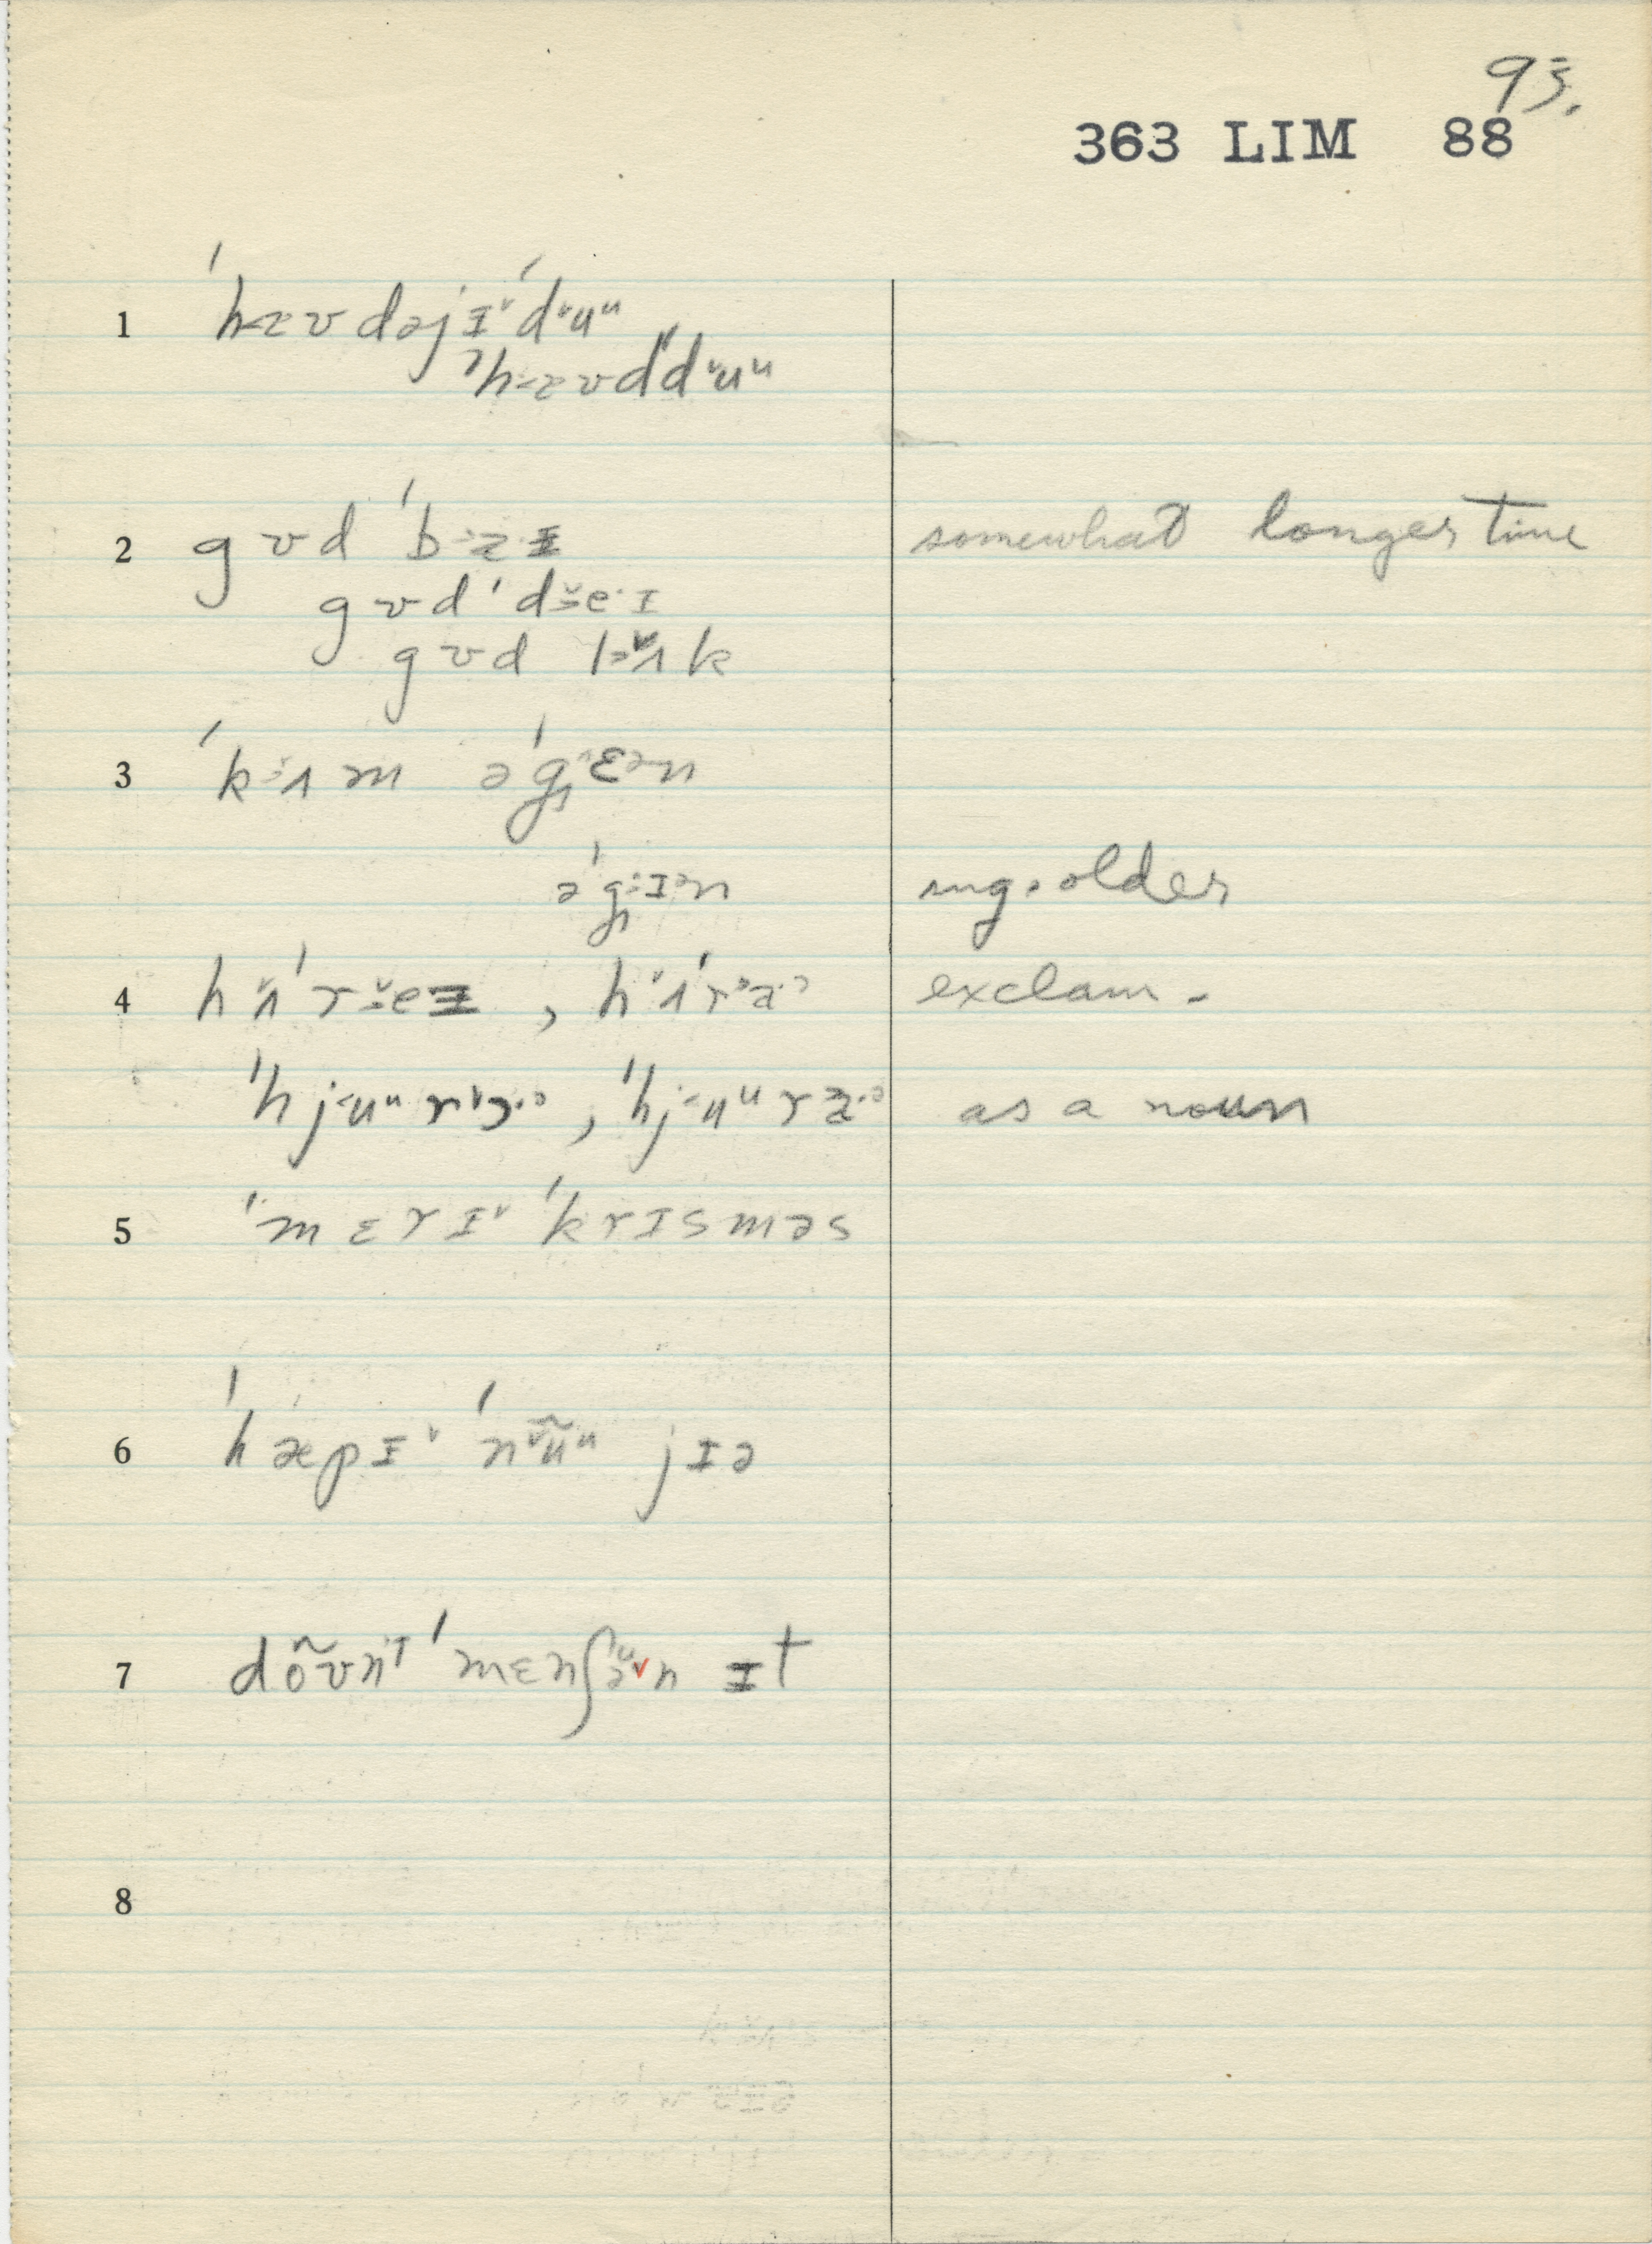 93.
363 LIM 88
1 ˈhaʊdəjɪ˅ˈd˅uᵘ
ˈhaʊdˈd˅uᵘ
2 gʊd ˈba·ɪ somewhat longer time
gʊd ˈde·ɪ
gʊd lʌk
3 ˈkʌm əˈgɛᵊn
əˈgɪᵊn sug. older
4 hʌˈreɪ , hʌˈra·ᵊ exclam.
ˈhjuᵘrɔ·ᵊ , ˈhjuᵘra·ᵊ as a noun
5 ˈmɛrɪ˅ ˈkrɪsməs
6 ˈhæpɪ˅ ˈn˅ũᵘ jɪə
7 dõʊnᵗ ˈmɛnʃə˅n ɪt
8